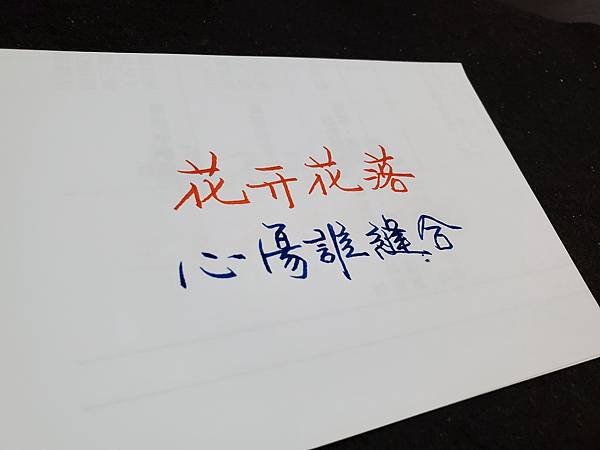 花开花落
心傷誰縫合